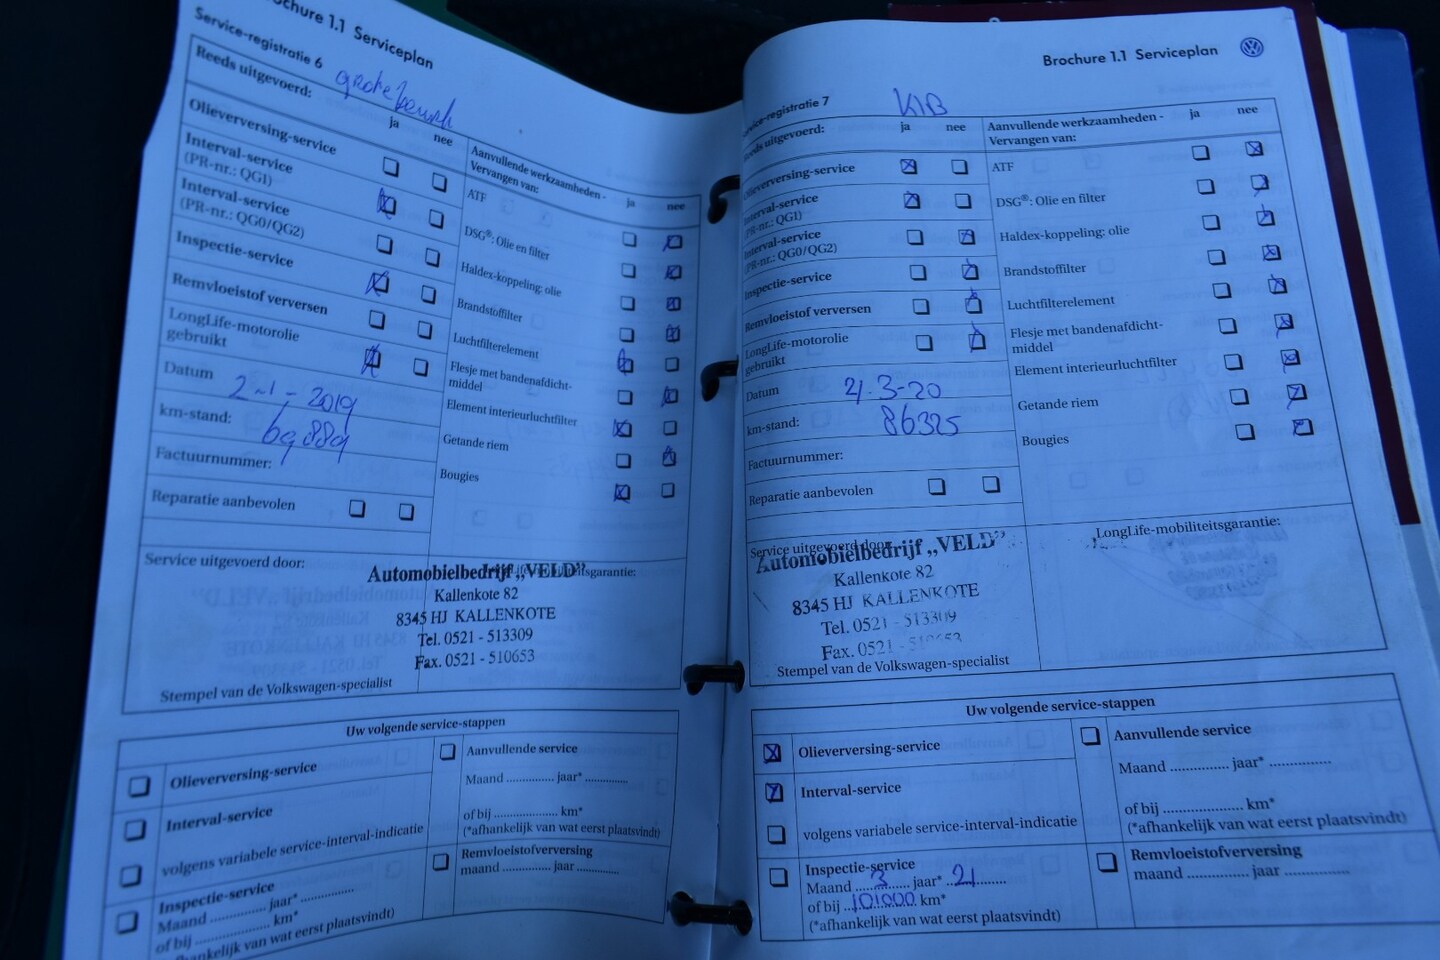 Brochure 1.1 Serviceplan
Service-registratie 6
Reeds uitgevoerd:
ja
nee
Olieverversing-service
Interval-service
(PR-nr.: QG1)
Interval-service
(PR-nr.: QG0/QG2)
Inspectie-service
Remvloeistof verversen
LongLife-motorolie
gebruikt
Datum
2-1-2019
km-stand:
69889
Factuurnummer:
Reparatie aanbevolen
Aanvullende werkzaamheden -
Vervangen van:
ja
nee
ATF
DSG®: Olie en filter
Haldex-koppeling: olie
Brandstoffilter
Luchtfilterelement
Flesje met bandenafdicht-
middel
Element interieurluchtfilter
Getande riem
Bougies
Service uitgevoerd door:
Automobielbedrijf „VELD”
Kallenkote 82
8345 HJ KALLENKOTE
Tel. 0521 - 513309
Fax. 0521 - 510653
Stempel van de Volkswagen-specialist
Uw volgende service-stappen
Olieverversing-service
Interval-service
volgens variabele service-interval-indicatie
Inspectie-service
Maand ............... jaar* ...............
of bij .................... km*
(*afhankelijk van wat eerst plaatsvindt)
Aanvullende service
Maand .............. jaar* .............
of bij .................... km*
(*afhankelijk van wat eerst plaatsvindt)
Remvloeistofverversing
maand .............. jaar .............
Brochure 1.1 Serviceplan
Service-registratie 7
Reeds uitgevoerd:
KIB
ja
nee
Olieverversing-service
Interval-service
(PR-nr.: QG1)
Interval-service
(PR-nr.: QG0/QG2)
Inspectie-service
Remvloeistof verversen
LongLife-motorolie
gebruikt
Datum
km-stand:
86325
Factuurnummer:
Reparatie aanbevolen
Aanvullende werkzaamheden -
Vervangen van:
ja
nee
ATF
DSG®: Olie en filter
Haldex-koppeling: olie
Brandstoffilter
Luchtfilterelement
Flesje met bandenafdicht-
middel
Element interieurluchtfilter
Getande riem
Bougies
Service uitgevoerd door:
LongLife-mobiliteitsgarantie:
Automobielbedrijf „VELD”
Kallenkote 82
8345 HJ KALLENKOTE
Tel. 0521 - 513309
Fax. 0521 - 510653
Stempel van de Volkswagen-specialist
Uw volgende service-stappen
Olieverversing-service
Interval-service
volgens variabele service-interval-indicatie
Inspectie-service
Maand 3 jaar* 21
of bij 101000 km*
(*afhankelijk van wat eerst plaatsvindt)
Aanvullende service
Maand .............. jaar* ..............
of bij .................... km*
(*afhankelijk van wat eerst plaatsvindt)
Remvloeistofverversing
maand .............. jaar ..............